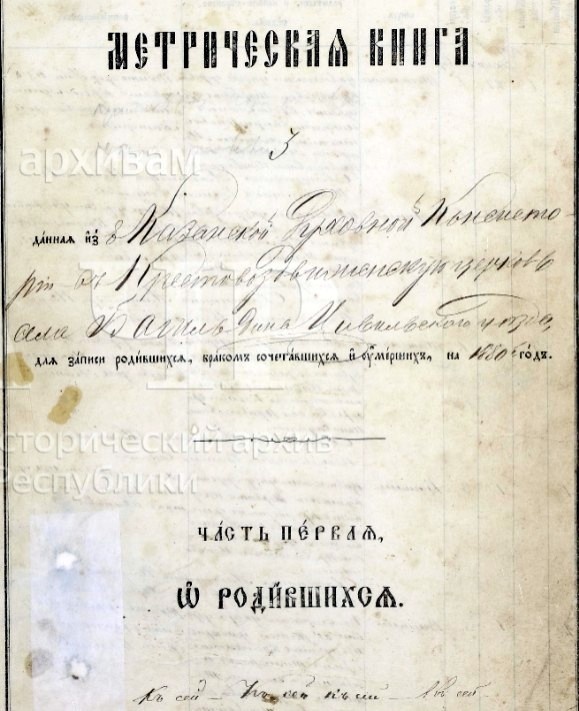 МЕТРИЧЕСКАЯ КНИГА
3
архивам
да́нная и҆з̾ Казанской Духовной Консисто-
ріи въ Крестовоздвиженскую церковь
села Цивильскаго уѣзда,
для за́писи роди́вшихсѧ, бра́комъ сочета́вшихсѧ и҆ ᲂу҆ме́ршихъ, на 1880 го́дъ.
сторический архив
Республики
ЧА́СТЬ ПЕ́РВАѦ,
Ѽ РОДИ́ВШИХСѦ.
Къ сей